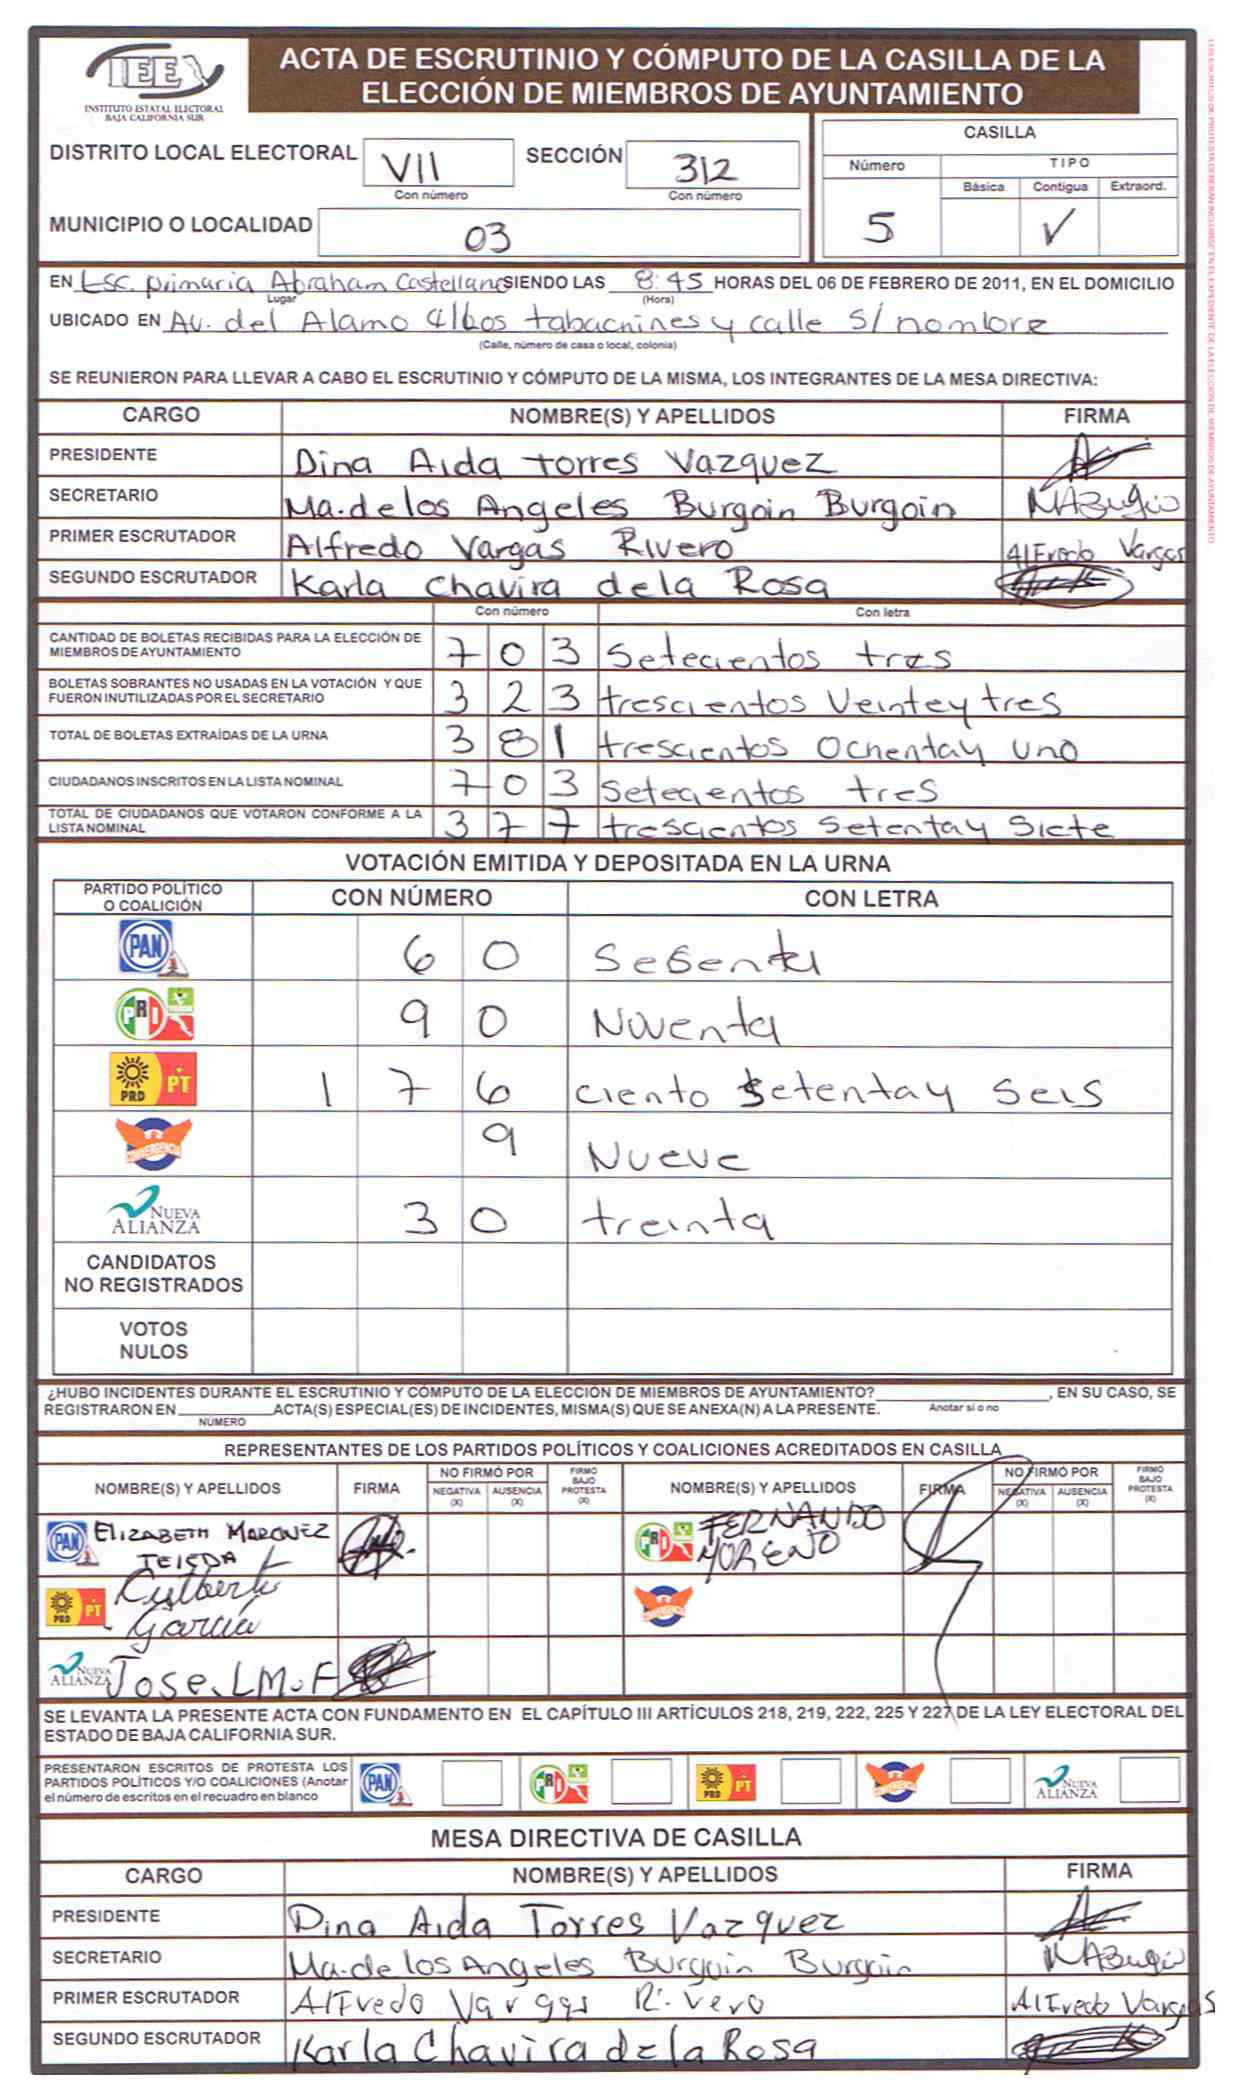 IEEX
INSTITUTO ESTATAL ELECTORAL
BAJA CALIFORNIA SUR
ACTA DE ESCRUTINIO Y CÓMPUTO DE LA CASILLA DE LA
ELECCIÓN DE MIEMBROS DE AYUNTAMIENTO
DISTRITO LOCAL ELECTORAL VII SECCIÓN 312
Con número Con número
MUNICIPIO O LOCALIDAD 03
CASILLA
Número TIPO
Básica Contigua Extraord.
5 ✓
EN Esc. primaria Abraham Castellano SIENDO LAS 8:45 HORAS DEL 06 DE FEBRERO DE 2011, EN EL DOMICILIO
Lugar (Hora)
UBICADO EN Av. del Alamo 4/bos tabachines y calle S/ nombre
(Calle, número de casa o local, colonia)
SE REUNIERON PARA LLEVAR A CABO EL ESCRUTINIO Y CÓMPUTO DE LA MISMA, LOS INTEGRANTES DE LA MESA DIRECTIVA:
CARGO NOMBRE(S) Y APELLIDOS FIRMA
PRESIDENTE Dina Aida Torres Vazquez
SECRETARIO Ma. de los Angeles Burgoin Burgoin
PRIMER ESCRUTADOR Alfredo Vargas Rivero Alfredo Vargas
SEGUNDO ESCRUTADOR Karla Chavira de la Rosa
Con número Con letra
CANTIDAD DE BOLETAS RECIBIDAS PARA LA ELECCIÓN DE
MIEMBROS DE AYUNTAMIENTO 7 0 3 Setecientos tres
BOLETAS SOBRANTES NO USADAS EN LA VOTACIÓN Y QUE
FUERON INUTILIZADAS POR EL SECRETARIO 3 2 3 trescientos Veinte y tres
TOTAL DE BOLETAS EXTRAÍDAS DE LA URNA 3 8 1 trescientos Ochenta y uno
CIUDADANOS INSCRITOS EN LA LISTA NOMINAL 7 0 3 Setecientos tres
TOTAL DE CIUDADANOS QUE VOTARON CONFORME A LA
LISTA NOMINAL 3 7 7 trescientos Setenta y Siete
VOTACIÓN EMITIDA Y DEPOSITADA EN LA URNA
PARTIDO POLÍTICO
O COALICIÓN CON NÚMERO CON LETRA
PAN 6 0 Sesenta
PRI 9 0 Noventa
PRD PT 1 7 6 Ciento Setenta y Seis
CONVERGENCIA 9 Nueve
NUEVA
ALIANZA 3 0 treinta
CANDIDATOS
NO REGISTRADOS
VOTOS
NULOS
¿HUBO INCIDENTES DURANTE EL ESCRUTINIO Y CÓMPUTO DE LA ELECCIÓN DE MIEMBROS DE AYUNTAMIENTO? , EN SU CASO, SE
Anotar si o no
REGISTRARON EN ACTA(S) ESPECIAL(ES) DE INCIDENTES, MISMA(S) QUE SE ANEXA(N) A LA PRESENTE.
NÚMERO
REPRESENTANTES DE LOS PARTIDOS POLÍTICOS Y COALICIONES ACREDITADOS EN CASILLA
NOMBRE(S) Y APELLIDOS FIRMA NO FIRMÓ POR NEGATIVA (X) AUSENCIA (X) FIRMÓ BAJO PROTESTA (X) NOMBRE(S) Y APELLIDOS FIRMA NO FIRMÓ POR NEGATIVA (X) AUSENCIA (X) FIRMÓ BAJO PROTESTA (X)
PAN ELIZABETH MARQUEZ
TEJEDA
PRI FERNANDO
MORENO
PRD PT Cutberto
García
CONVERGENCIA
NUEVA
ALIANZA Jose. L M. F
SE LEVANTA LA PRESENTE ACTA CON FUNDAMENTO EN EL CAPÍTULO III ARTÍCULOS 218, 219, 222, 225 Y 227 DE LA LEY ELECTORAL DEL
ESTADO DE BAJA CALIFORNIA SUR.
PRESENTARON ESCRITOS DE PROTESTA LOS
PARTIDOS POLÍTICOS Y/O COALICIONES (Anotar
el número de escritos en el recuadro en blanco
PAN PRI PRD PT CONVERGENCIA NUEVA ALIANZA
MESA DIRECTIVA DE CASILLA
CARGO NOMBRE(S) Y APELLIDOS FIRMA
PRESIDENTE Dina Aida Torres Vazquez
SECRETARIO Ma. de los Angeles Burgoin Burgoin
PRIMER ESCRUTADOR Alfredo Vargas Rivero Alfredo Vargas
SEGUNDO ESCRUTADOR Karla Chavira de la Rosa